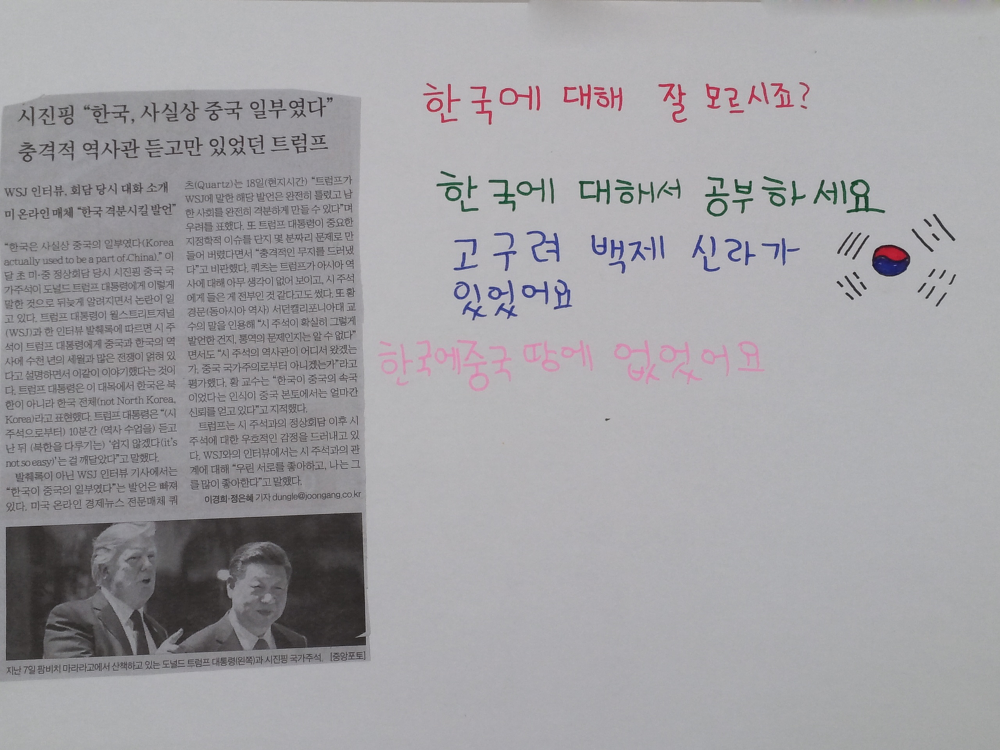 시진핑 “한국, 사실상 중국 일부였다”
충격적 역사관 듣고만 있었던 트럼프
WSJ 인터뷰, 회담 당시 대화 소개
미 온라인 매체 “한국 격분시킬 발언”
“한국은 사실상 중국의 일부였다(Korea
actually used to be a part of China).” 이
달 초 미·중 정상회담 당시 시진핑 중국 국
가주석이 도널드 트럼프 대통령에게 이렇게
말한 것으로 뒤늦게 알려지면서 논란이 일
고 있다. 트럼프 대통령이 월스트리트저널
(WSJ)과 한 인터뷰 발췌록에 따르면 시 주
석이 트럼프 대통령에게 중국과 한국의 역
사에 수천 년의 세월과 많은 전쟁이 얽혀 있
다고 설명하면서 이같이 이야기했다는 것이
다. 트럼프 대통령은 이 대목에서 한국은 북
한이 아니라 한국 전체(not North Korea,
Korea)라고 표현했다. 트럼프 대통령은 “(시
주석으로부터) 10분간 (역사 수업을) 듣고
난 뒤 (북한을 다루기는) ‘쉽지 않겠다(it’s
not so easy)’는 걸 깨달았다”고 말했다.
발췌록이 아닌 WSJ 인터뷰 기사에서는
“한국이 중국의 일부였다”는 발언은 빠져
있다. 미국 온라인 경제뉴스 전문매체 쿼
츠(Quartz)는 18일(현지시간) “트럼프가
WSJ에 말한 해당 발언은 완전히 틀렸고 남
한 사회를 완전히 격분하게 만들 수 있다”며
우려를 표했다. 또 트럼프 대통령이 중요한
지정학적 이슈를 단지 몇 분짜리 문제로 만
들어 버렸다면서 “충격적인 무지를 드러냈
다”고 비판했다. 쿼츠는 트럼프가 아시아 역
사에 대해 아무 생각이 없어 보이고, 시 주석
에게 들은 게 전부인 것 같다고도 썼다. 또 황
경문(동아시아 역사) 서던캘리포니아대 교
수의 말을 인용해 “시 주석이 확실히 그렇게
발언한 건지, 통역의 문제인지는 알 수 없다”
면서도 “시 주석의 역사관이 어디서 왔겠는
가. 중국 국가주의로부터 아니겠는가”라고
평가했다. 황 교수는 “한국이 중국의 속국
이었다는 인식이 중국 본토에서는 얼마간
신뢰를 얻고 있다”고 지적했다.
트럼프는 시 주석과의 정상회담 이후 시
주석에 대한 우호적인 감정을 드러내고 있
다. WSJ와의 인터뷰에서는 시 주석과의 관
계에 대해 “우린 서로를 좋아하고, 나는 그
를 많이 좋아한다”고 말했다.
이경희·정은혜 기자 dungle@joongang.co.kr
지난 7일 팜비치 마라라고에서 산책하고 있는 도널드 트럼프 대통령(왼쪽)과 시진핑 국가주석. [중앙포토]
한국에 대해 잘 모르시죠?
한국에 대해서 공부하세요
고구려 백제 신라가
있었어요
한국에중국 땅에 없었어요